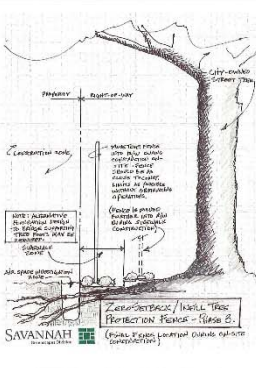 CITY-OWNED
STREET TREE
PROPERTY
RIGHT-OF-WAY
CONSTRUCTION ZONE
FENCE
INTO R/W DURING
CONSTRUCTION ON-
SITE - FENCE
SHOULD BE AS
CLOSE TO CONST.
LIMITS AS POSSIBLE
WITHOUT
OPERATIONS.
(FENCE IS MOVED
FURTHER INTO R/W
DURING SIDEWALK
CONSTRUCTION)
NOTE: ALTERNATIVE
FOUNDATION DESIGN
TO BRIDGE SUPPORTING
TREE ROOTS MAY BE
REQUIRED.
ZONE
AIR SPACE
ZONE
ZERO-SETBACK/INFILL TREE
PROTECTION FENCE - PHASE 3.
(FINAL FENCE LOCATION DURING ON-SITE
CONSTRUCTION)
SAVANNAH